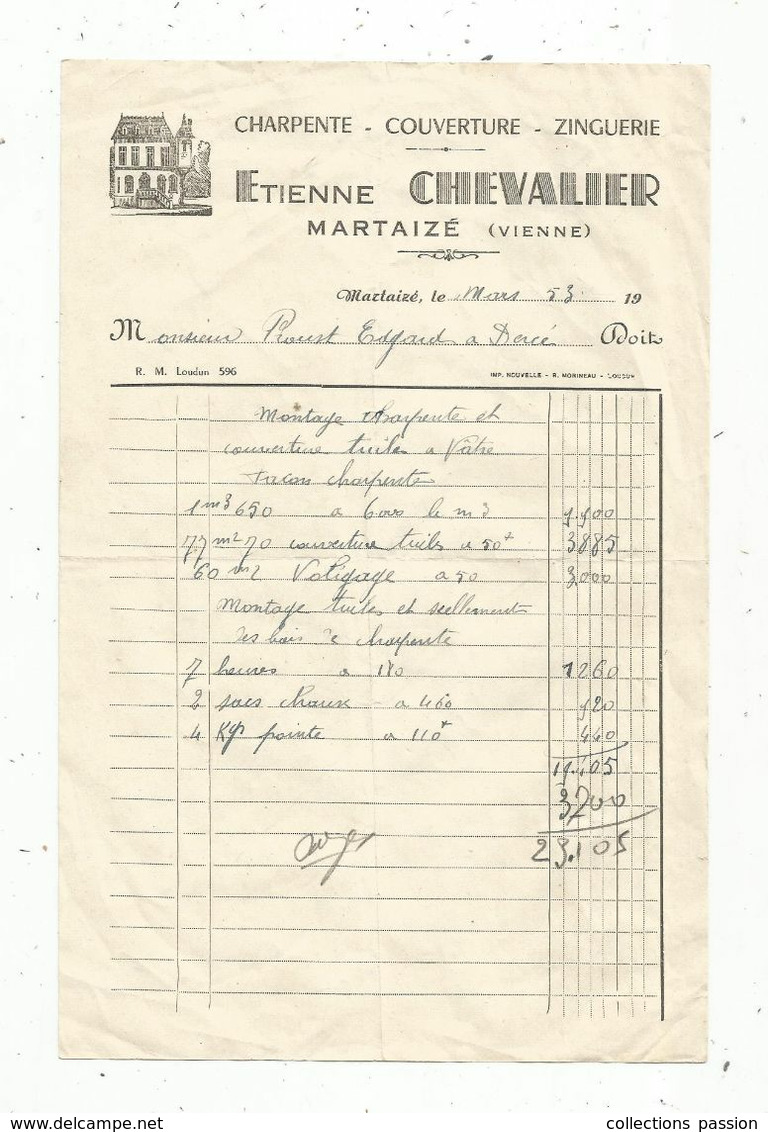 CHARPENTE - COUVERTURE - ZINGUERIE
ETIENNE CHEVALIER
MARTAIZÉ (VIENNE)
Martaizé, le Mars 53 19
Monsieur Proust Edgard a Dercé Doit
R. M. Loudun 596 IMP. NOUVELLE - R. MORINEAU - LOUDUN
Montage charpente et
couverture tuiles a Vâtre
Facon charpente
1 m3 650 a 6000 le m3 9.900
77 m2 70 couverture tuiles a 50 3885
60 m2 Voligage a 50 3000
Montage tuiles et scellement
des bois de charpente
7 heures a 180 1260
2 sacs chaux - a 460 920
4 Kgs pointe a 110 440
19.405
3700
23.105
collections passion